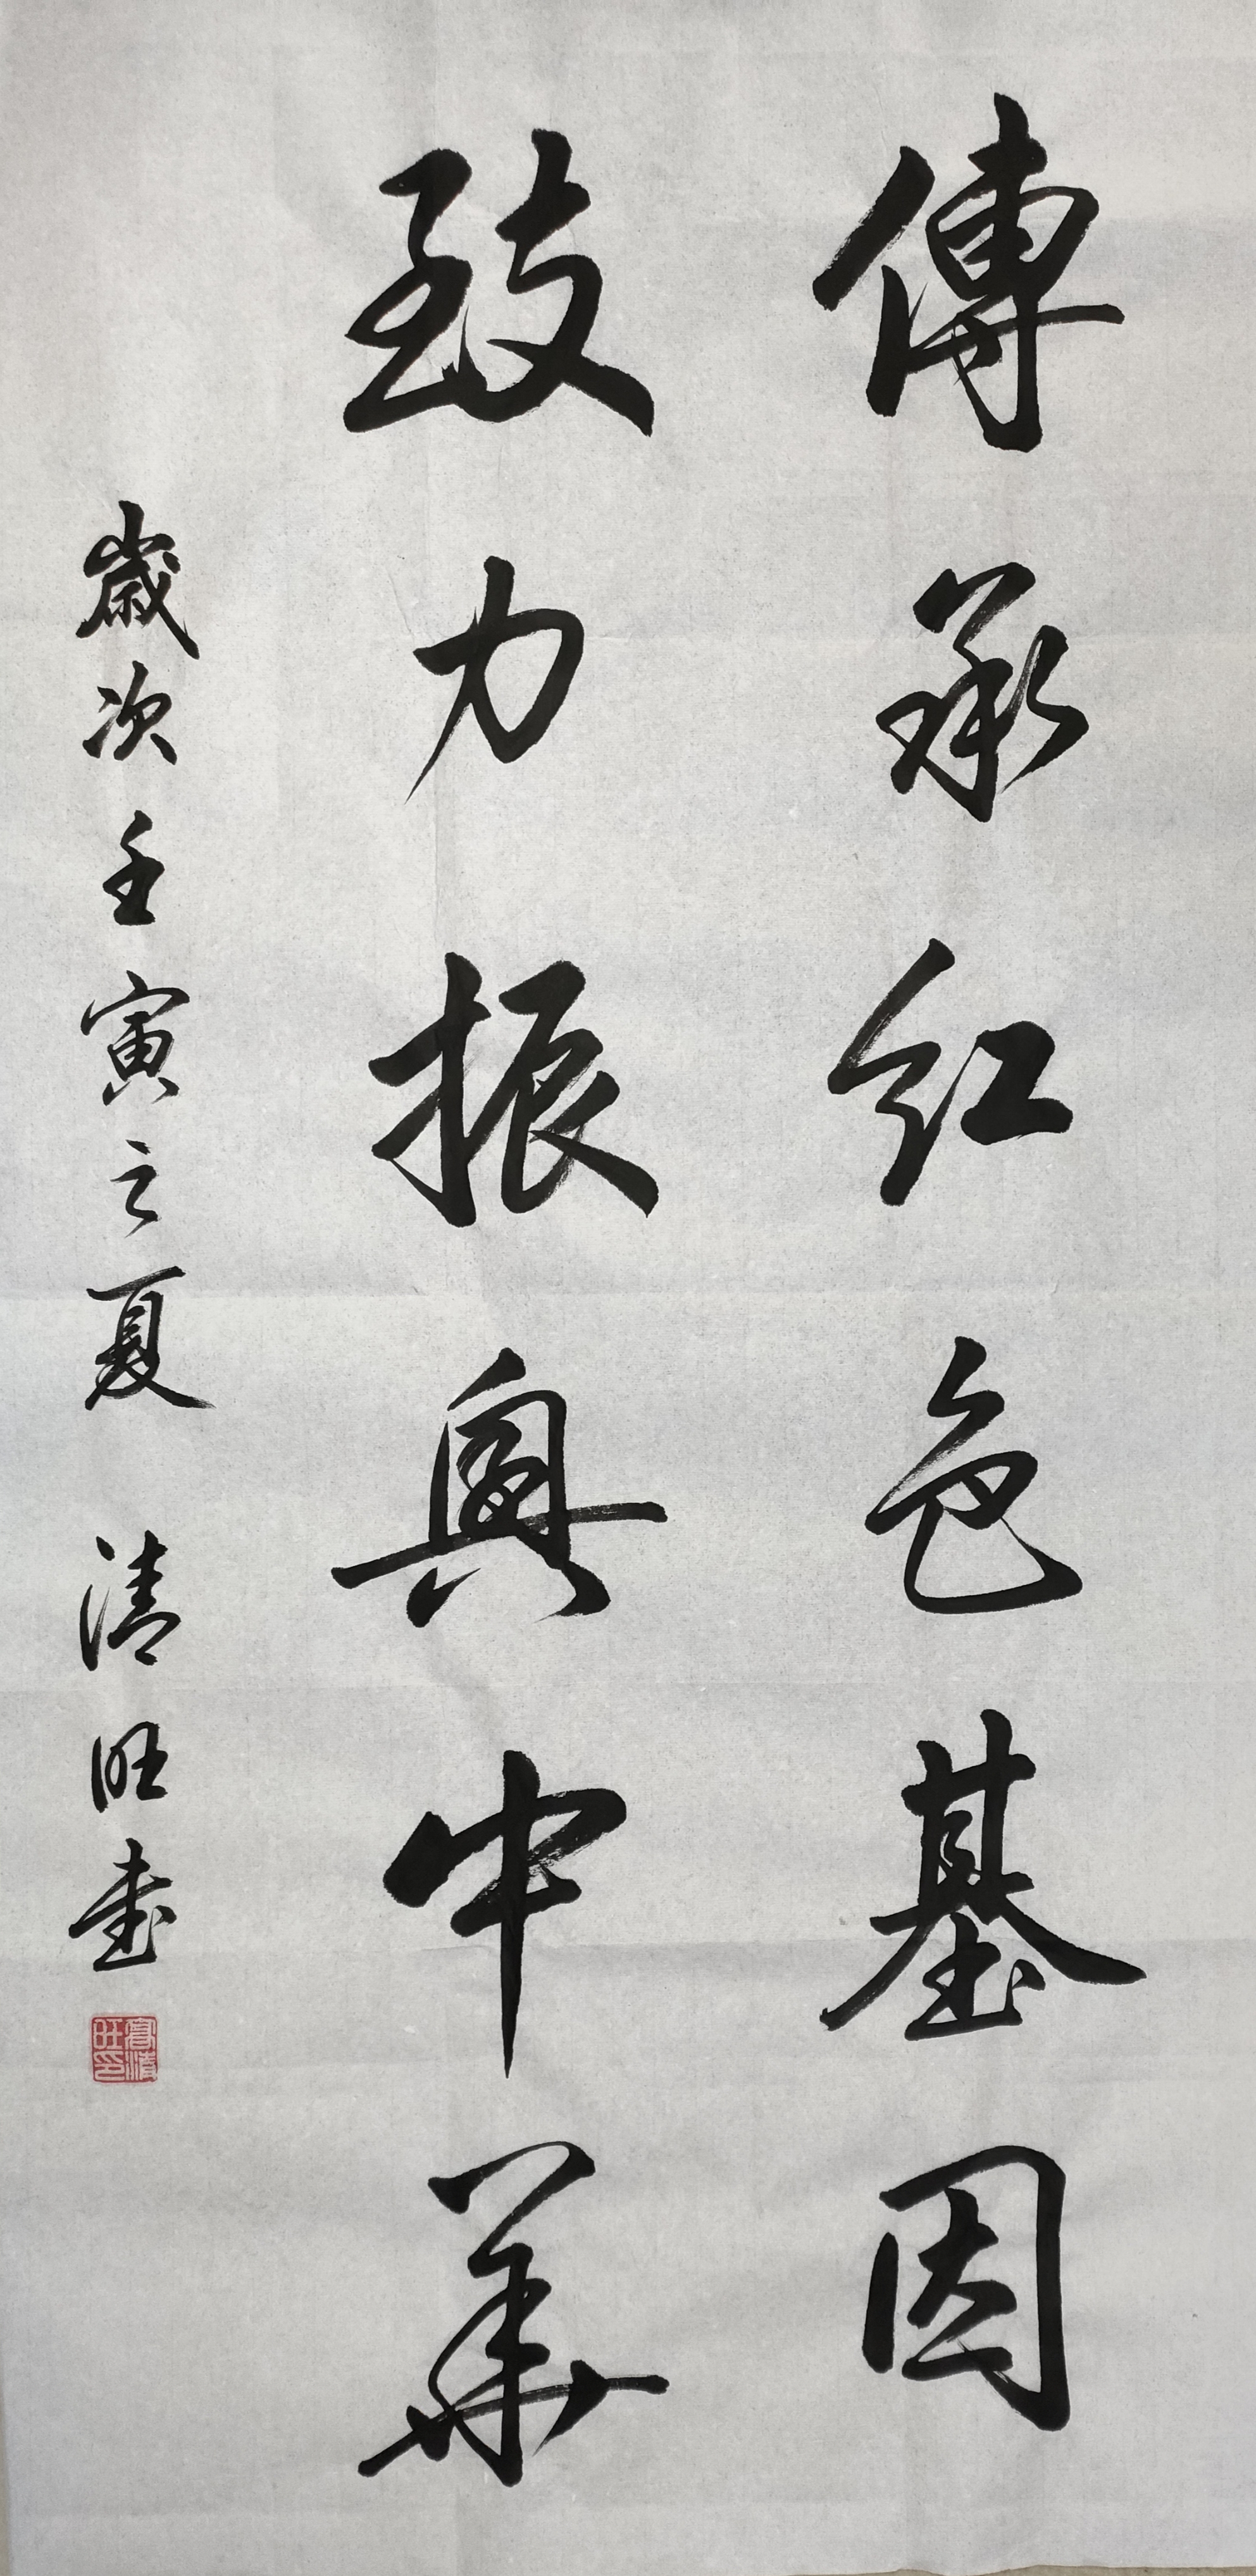 傳承红色基因
致力振興中華
歲次壬寅之夏 清旺書
高清旺印